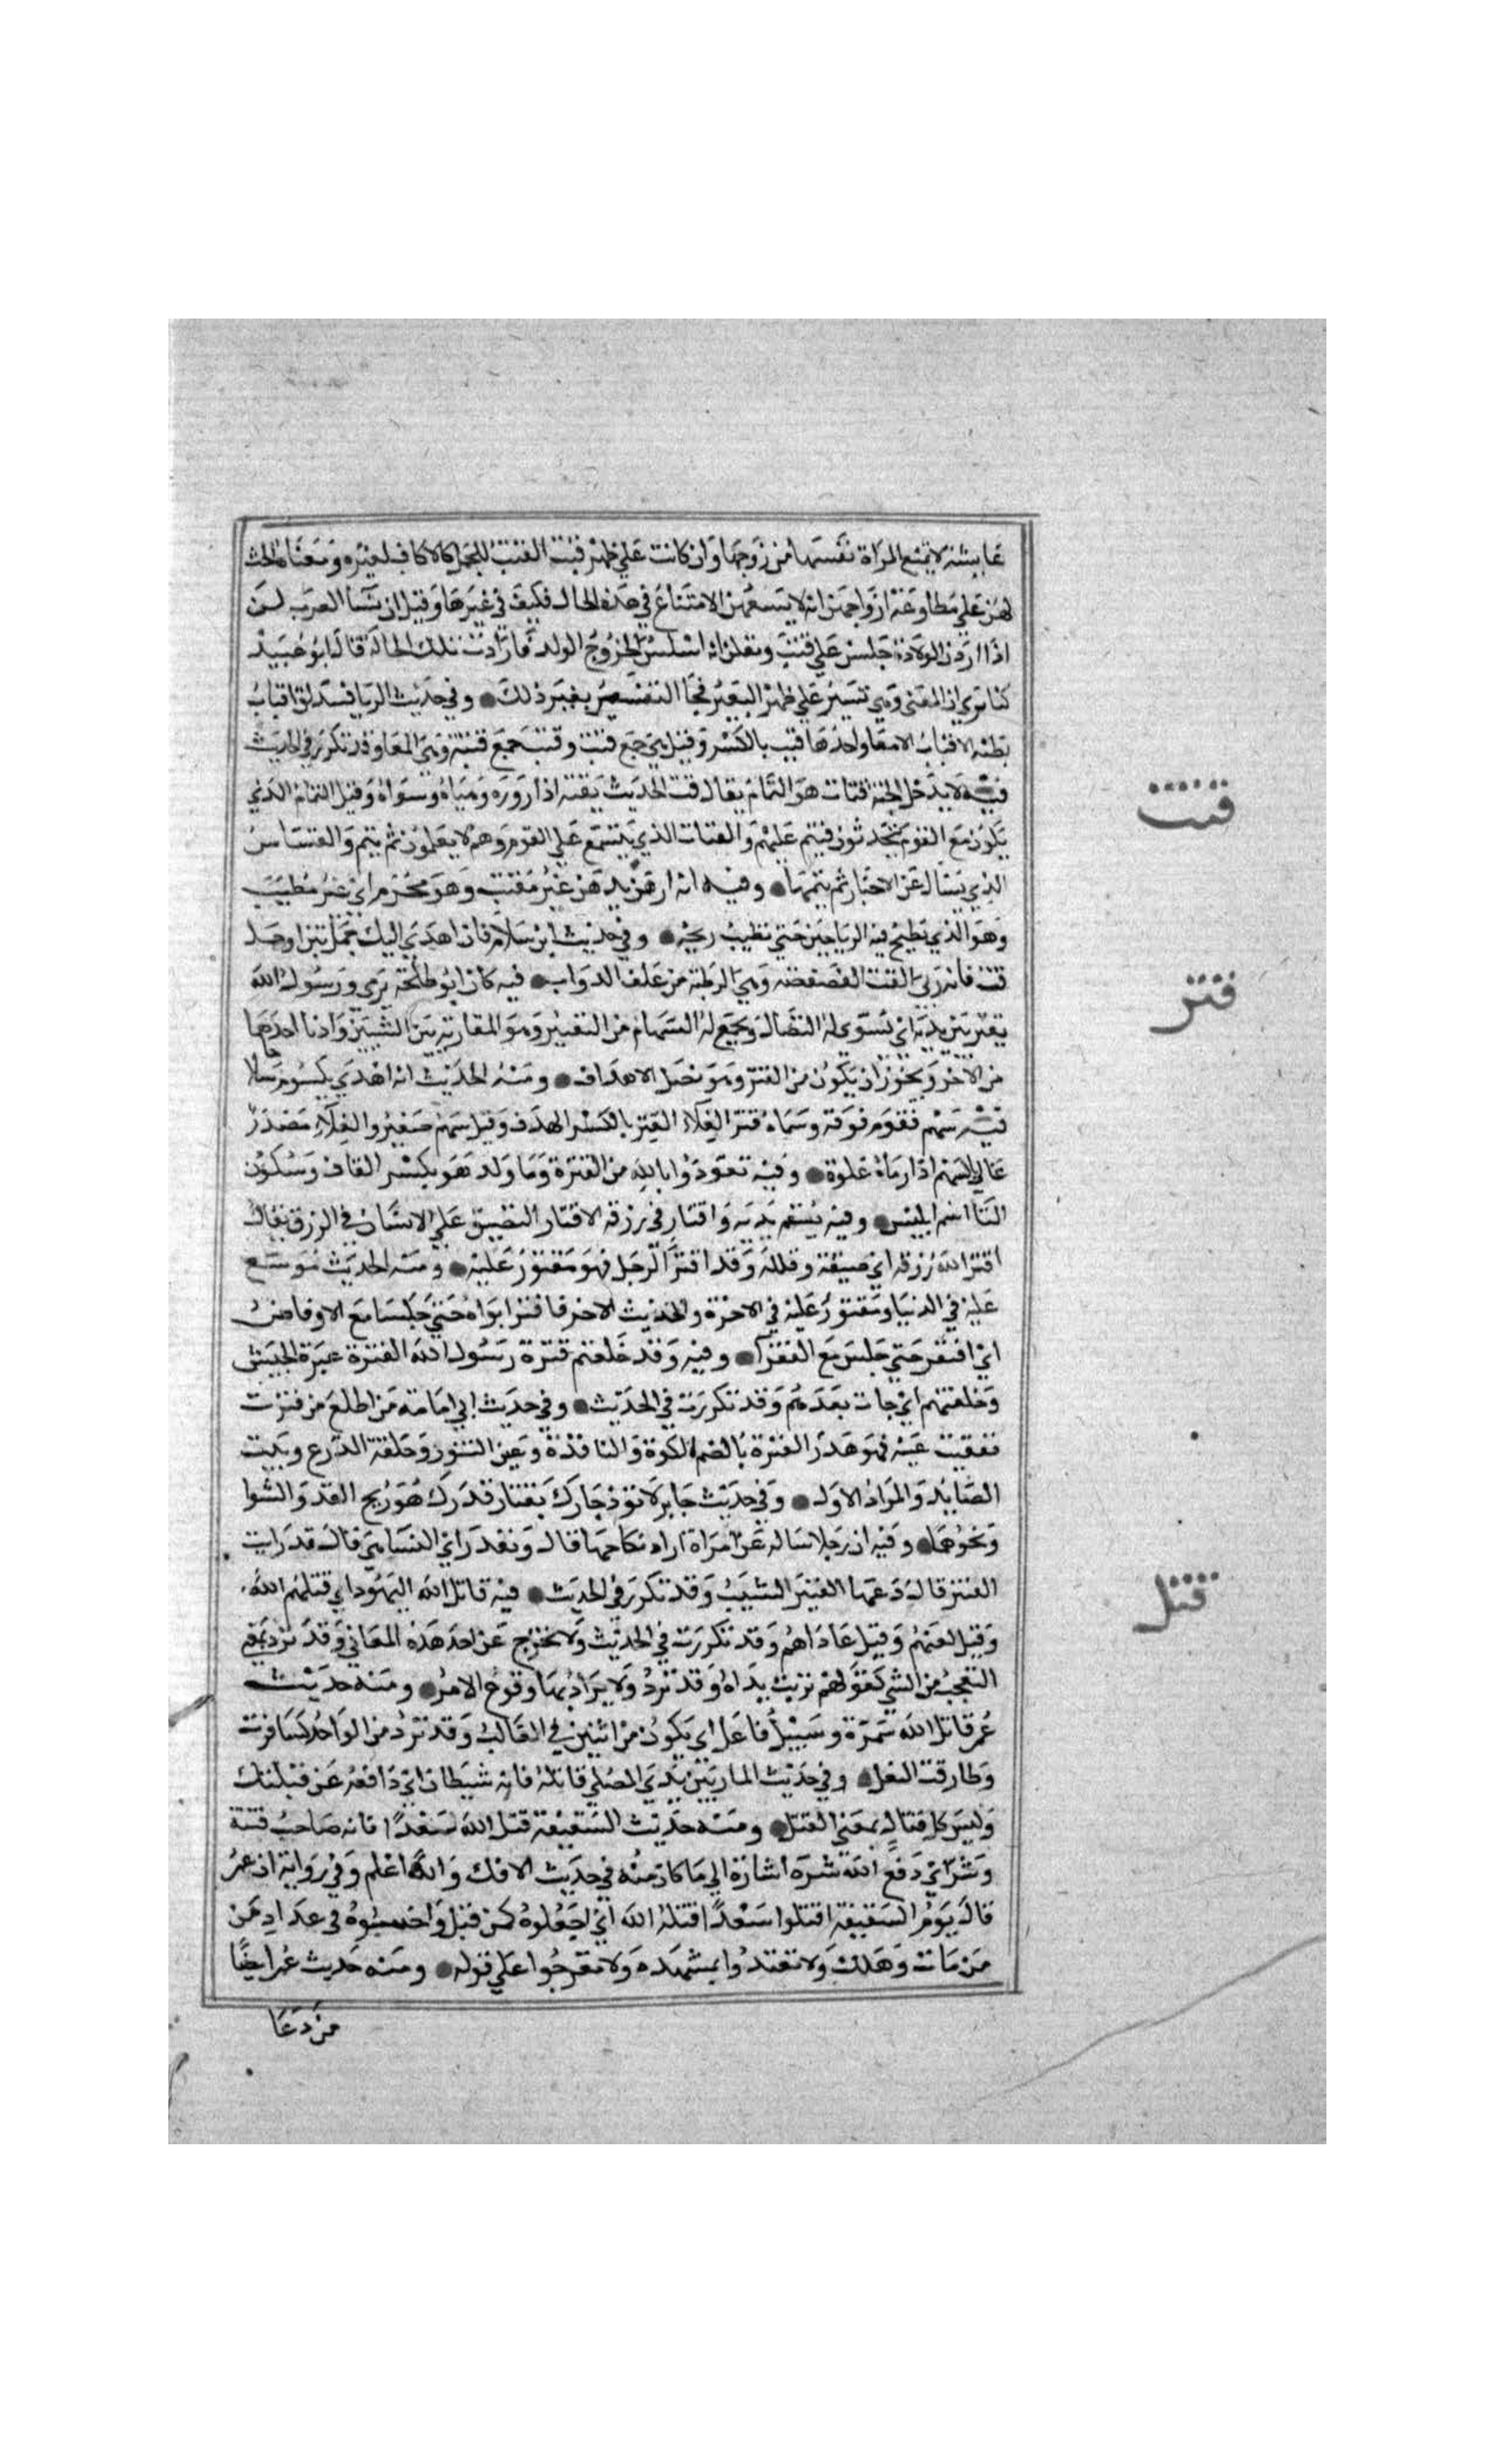 عايشة لا تمنع المرأة نفسها من زوجها وان كانت على ظهر قتب القتب للجمل كالاكاف لغيره ومعناه الحث
لهن علي مطاوعة ازواجهن انه لا يسعهن الامتناع في هذه الحال فكيف في غيرها وقيل ان نسا العرب كن
اذا اردن الولادة جلسن علي قتب ويقلن انه اسلس لخروج الولد فارادت تلك الحالة قال ابو عبيد
كنا نري ان المعنى وهي تسير علي ظهر البعير فجا التفسير بغير ذلك وفي حديث الربا فتندلق اقتاب
بطنه الاقتاب الامعا واحدها قتب بالكسر وقيل هي جمع قتب وقتب جمع قتبة وهي المعا وقد تكرر في الحديث
فيه لا يدخل الجنة قتات هو النمام يقال قت الحديث يقته اذا زوره وهياه وسواه وقيل النمام الذي
يكون مع القوم يتحدثون فينم عليهم والقتات الذي يتسمع علي القوم وهم لا يعلمون ثم ينم والقساس
الذي يسال عن الاخبار ثم ينمها وفيه انه ادهن بدهن غير مقتت وهو محرم اي غير مطيب
وهو الذي يطبخ فيه الرياحين حتي تطيب ريحه وفي حديث ابن سلام فان اهدي اليك حمل تبن او حمل
قت فانه ربي القت الفصفصة وهي الرطبة من علف الدواب فيه كان ابو طلحة يرمي ورسول الله
يقتر بين يديه اي يسوي له النصال ويجمع له السهام من التقتير وهو المقاربة بين الشيين وادنا احدها
من الاخر ويجوز ان يكون من القتر وهو نصل الاهداف ومنه الحديث انه اهدي له يكسوم سلاحا
فيه سهم فقوم فوقه وسماه قتر الغلاء القتر بالكسر الهدف وقيل سهم صغير والغلاء مصدر
غالي بالسهم اذا رماه غلوة وفيه تعوذوا بالله من القترة وما ولد هو بكسر القاف وسكون
التا اسم ابليس وفيه بسقم بدنه واقتار في رزقه الاقتار التضييق علي الانسان في الرزق يقال
اقتر الله رزقه اي ضيقه وقلله وقد اقتر الرجل فهو مقتور عليه ومنه الحديث موسع
عليه في الدنيا ومقتور عليه في الاخرة والحديث الاخر فاقتر ابواه حتي جلسا مع الاوفاض
اي افتقر حتي جلس مع الفقرا وفيه وقد خلفتهم قترة رسول الله القترة غبرة الجيش
وخلفتهم اي جات بعدهم وقد تكررت في الحديث وفي حديث ابي امامة من اطلع من قترت
ففقيت عينه فهو هدر القترة بالضم الكوة والنافذة وعين التنور وحلقة الدرع وبيت
الصايد والمراد الاول وفي حديث جابر لا توذ جارك بقتار قدرك هو ريح القدر والشوا
ونحوهما وفيه ان رجلا ساله عن امراة اراد نكاحها قال وبقدر اي النسا هي قال قد رات
القتر قال دعها القتير الشيب وقد تكرر في الحديث فيه قاتل الله اليهود اي قتلهم الله
وقيل لعنهم وقيل عاداهم وقد تكررت في الحديث ولا تخرج عن احد هذه المعاني وقد ترد بمعني
التعجب من الشي كقولهم تربت يداه وقد ترد ولا يراد بها وقوع الامر ومنه حديث
عمر قاتل الله سمرة وسبيل فاعل ان يكون من اثنين في الغالب وقد ترد من الواحد كسافرت
وطارقت النعل وفي حديث المار بين يدي المصلي قاتله فانه شيطان اي دافعه عن قبلتك
وليس كل قتال بمعني القتل ومنه حديث السقيفة قتل الله سعدا فانه صاحب فتنة
وشر اي دفع الله شره اشارة الي ما كان منه في حديث الافك والله اعلم وفي رواية ان عمر
قال يوم السقيفة اقتلوا سعدا قتله الله اي اجعلوه كمن قتل واحسبوه في عداد من
من مات وهلك ولا تعتدوا بمشهده ولا تعرجوا علي قوله ومنه حديث عمر ايضا
من دعا
قتت
قتر
قتل